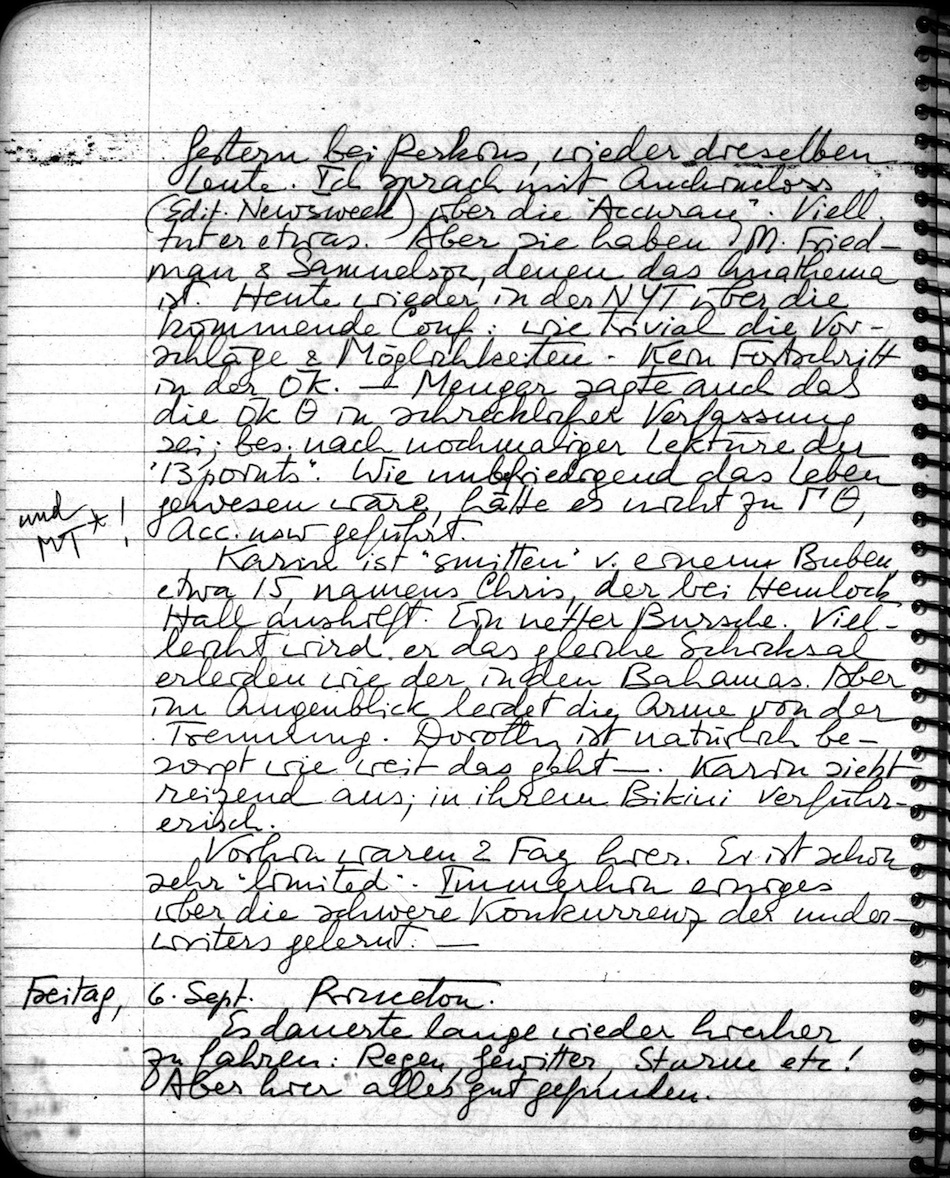 Gestern bei Perkins, wieder dieselben
Leute. Ich sprach mit Auchincloss
(Edit. Newsweek) über die "Accuracy". Viell.
tut er etwas. Aber sie haben M. Fried-
man & Samuelson, denen das Anathema
ist. Heute wieder in der NYT über die
kommende Conf.: wie trivial die Vor-
schläge & Möglichkeiten. Kein Fortschritt
in der Ök. — Menger sagte auch das
die Ök Θ in schrecklicher Verfassung
sei; bes. nach nochmaliger Lektüre der
"13 points". Wie unbefriedigend das Leben
gewesen wäre, hätte es nicht zu ΓΘ,
und MT*!
Acc. usw geführt.
Karin ist "smitten" v. einem Buben,
etwa 15, namens Chris, der bei Hemlock
Hall aushilft. Ein netter Bursche. Viel-
leicht wird er das gleiche Schicksal
erleiden wie der in den Bahamas. Aber
im Augenblick leidet die Arme von der
Trennung. Dorothy ist natürlich be-
sorgt wie weit das geht —. Karin sieht
reizend aus; in ihrem Bikini verführ-
erisch.
Vorhin waren 2 Fag hier. Er ist schon
sehr "limited". Immerhin einiges
über die schwere Konkurrenz der under-
writers gelernt. —
Freitag, 6. Sept. Princeton.
Es dauerte lange wieder hierher
zu fahren: Regen, Gewitter, Sturm etc!
Aber hier alles gut gefunden.